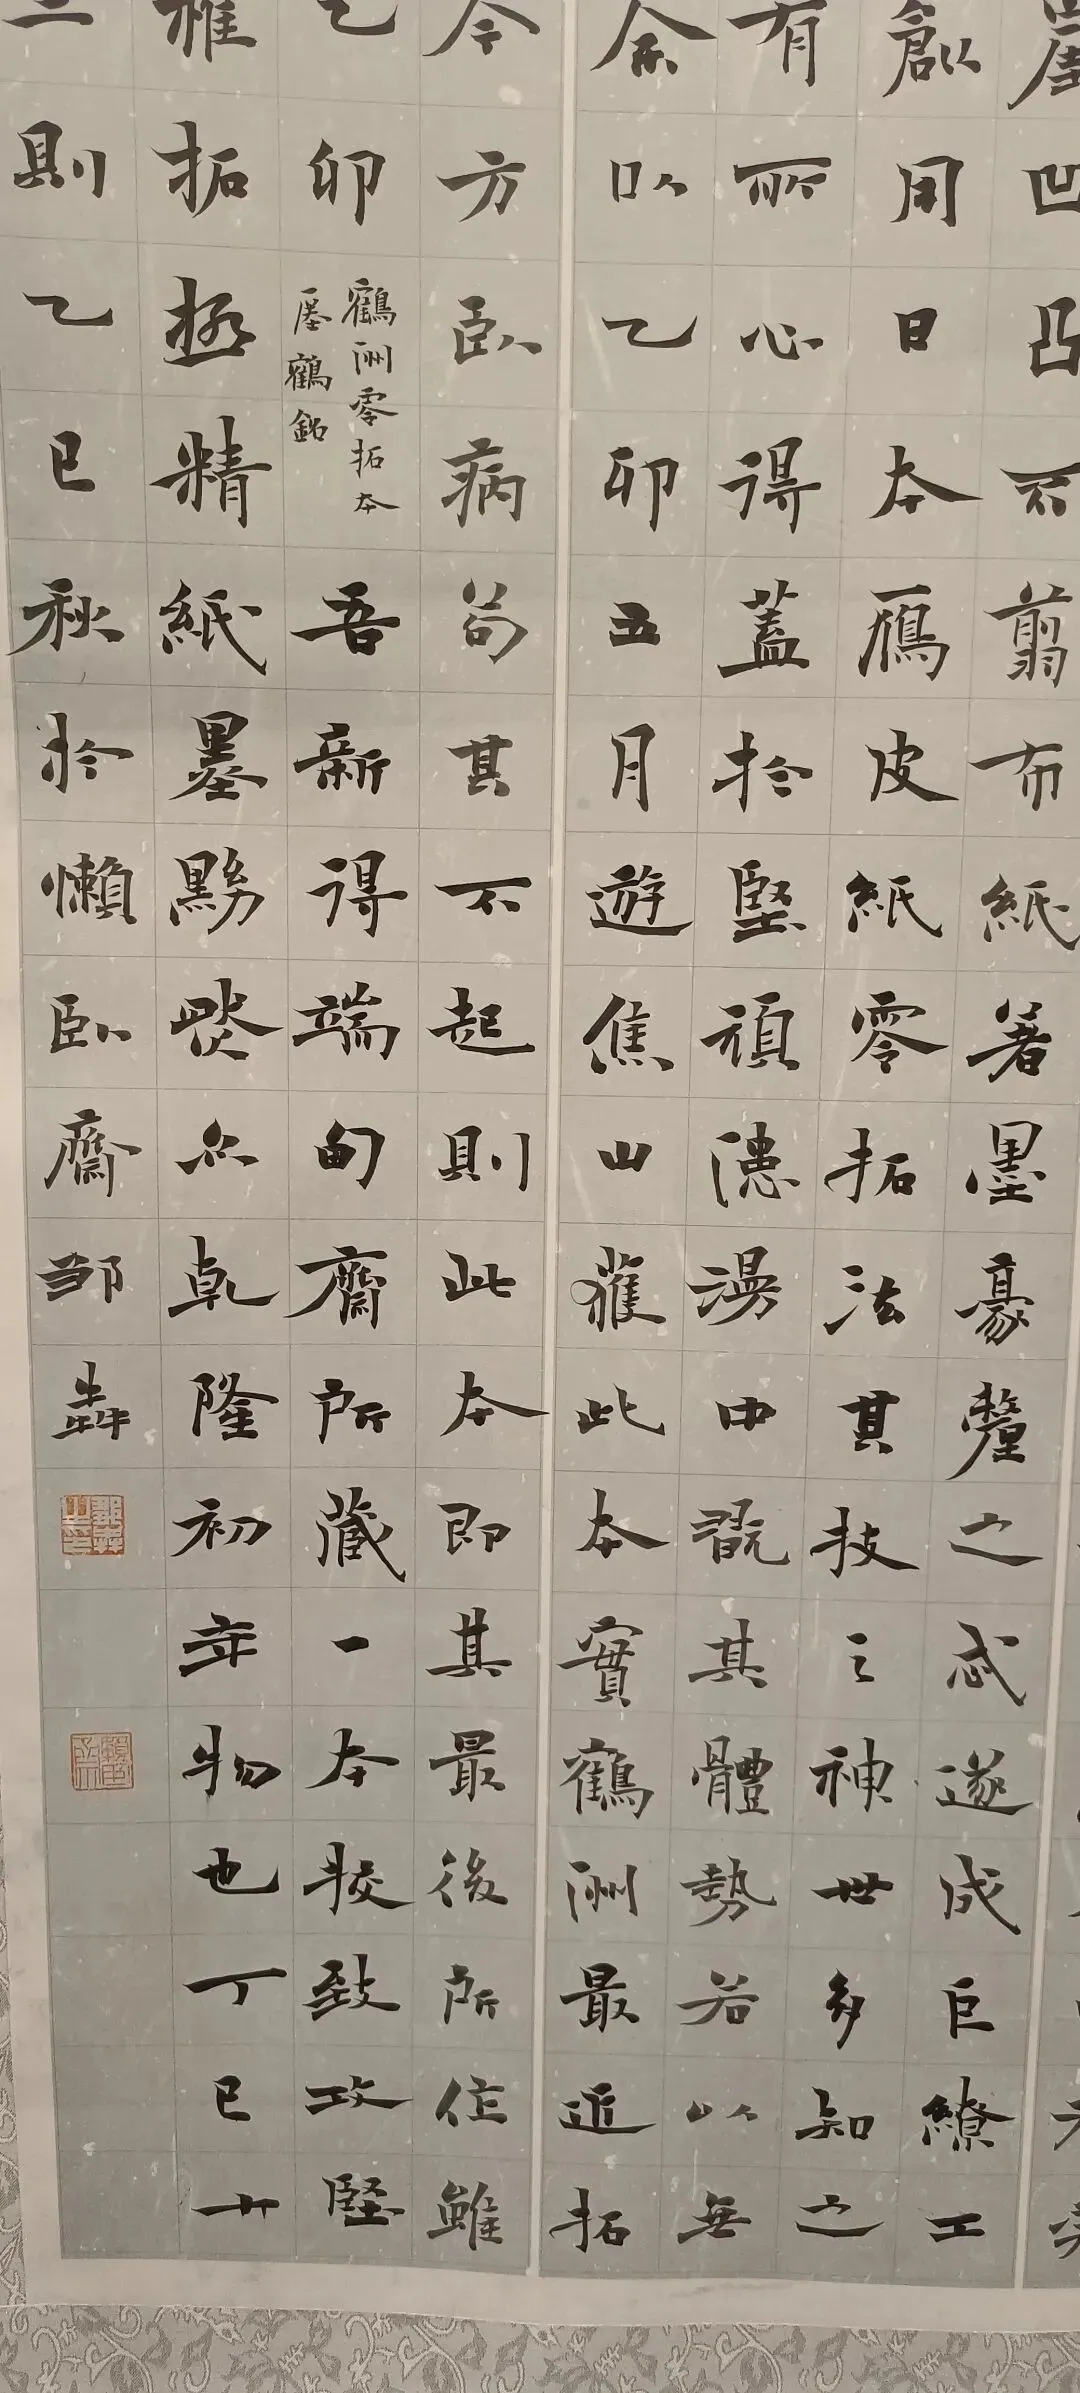 崖凹凸不翦布紙著墨豪釐之忒遂成巨繚工
創用日本鴈皮紙零拓法其技之神世多知之
有所心得蓋於堅頑漶漫中翫其體勢若以無
余以乙卯五月遊焦山獲此本實鶴洲最近拓
今方臥病苟其不起則此本即其最後所作雖
乙卯
鶴洲零拓本
瘞鶴銘
吾新得端匋齋所藏一本校致攻堅
雅拓極精紙墨黝燄亦乾隆初年物也丁巳十
二則乙巳秋於懶臥齋邹犇